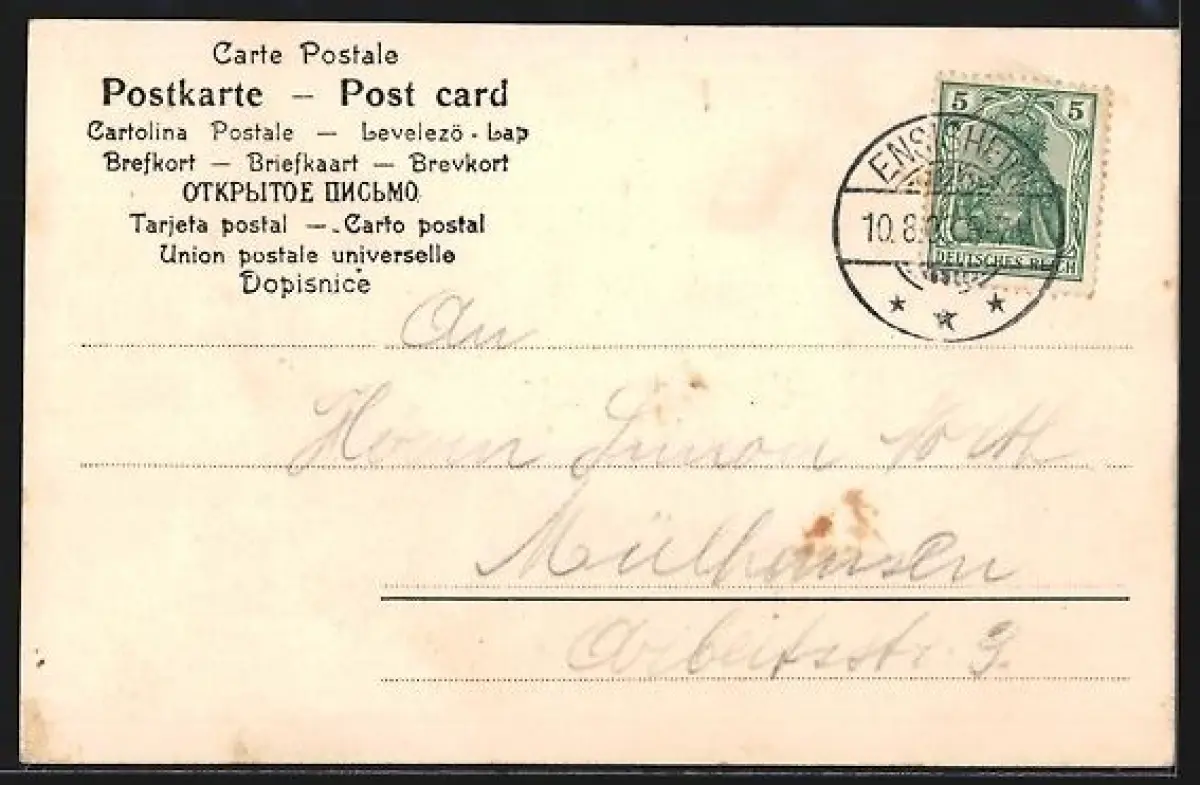 Carte Postale
Postkarte – Post card
Cartolina Postale – Levelezö - Lap
Brefkort – Briefkaart – Brevkort
ОТКРЫТОЕ ПИСЬМО
Tarjeta postal – Carto postal
Union postale universelle
Dopisnice
5 5
DEUTSCHES REICH
10.8.
An
Herrn
Mülhausen
Arbeitsstr. 3.